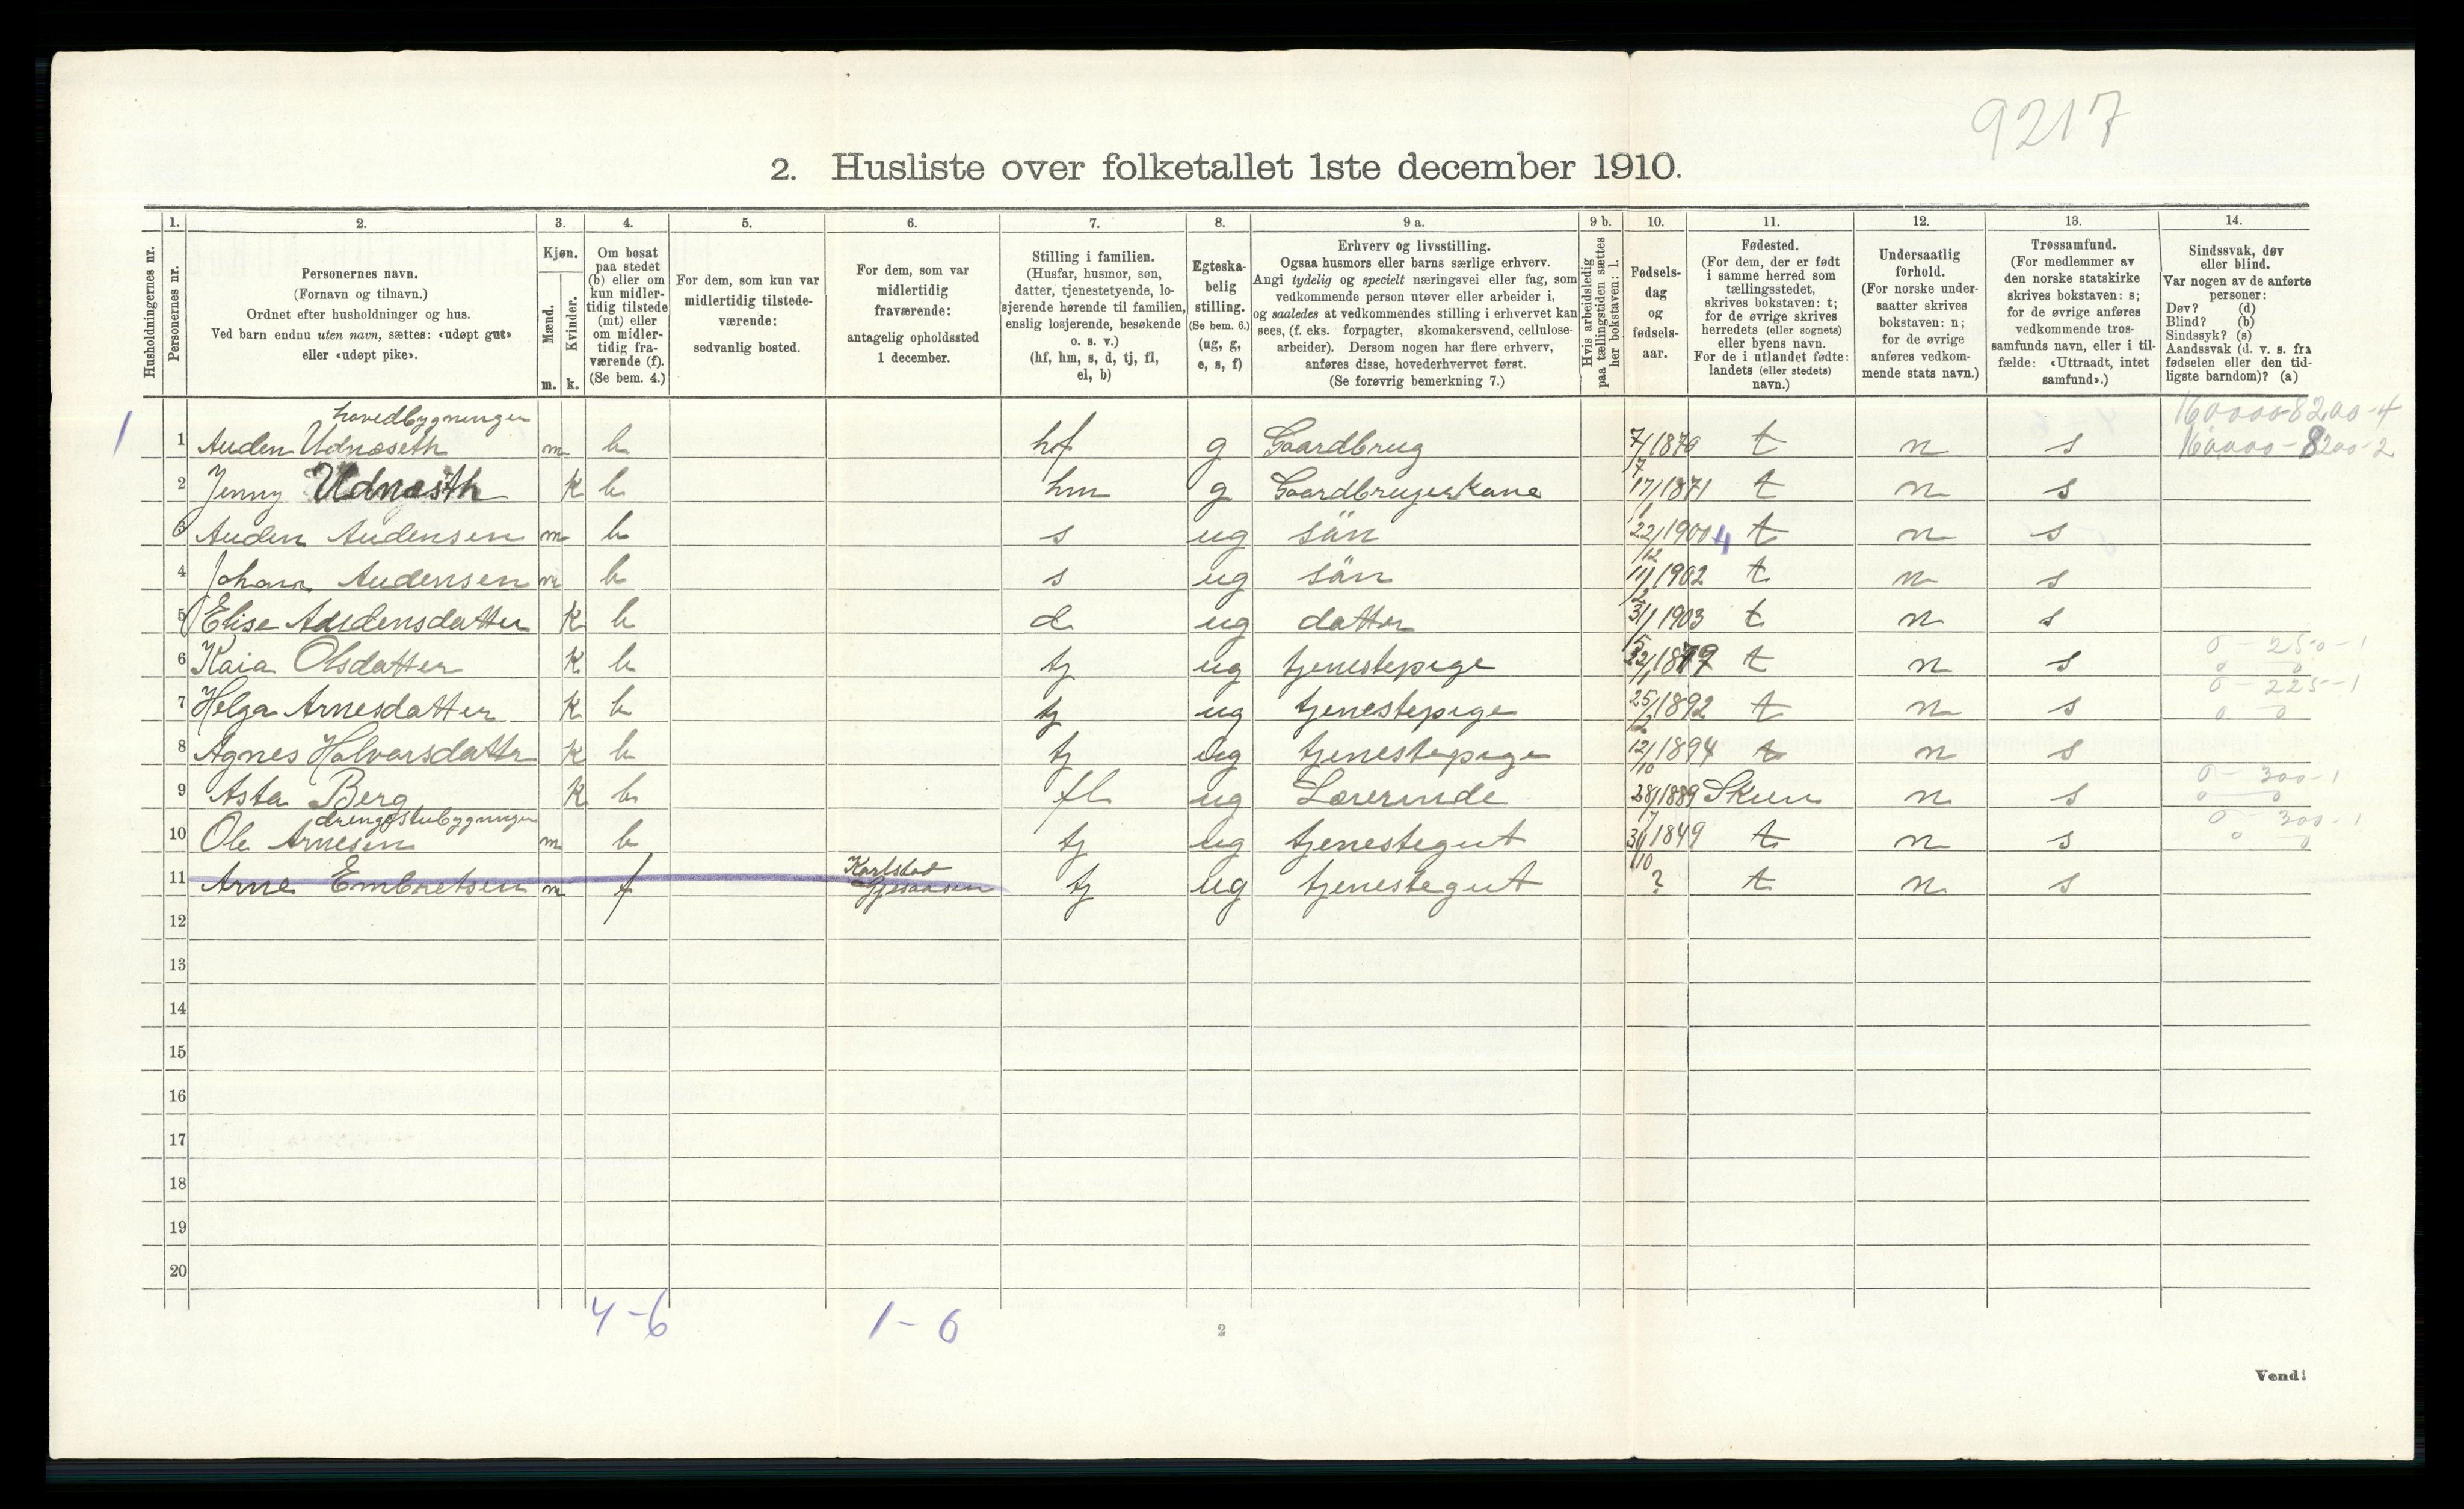 9217
2. Husliste over folketallet 1ste december 1910.
Husholdningernes nr.
1.
Personernes nr.
2.
Personernes navn.
(Fornavn og tilnavn.)
Ordnet efter husholdninger og hus.
Ved barn endnu uten navn, sættes: «udøpt gut»
eller «udøpt pike».
3.
Kjøn.
Mænd.
m.
Kvinder.
k.
4.
Om bosat
paa stedet
(b) eller om
kun midler-
tidig tilstede
(mt) eller
om midler-
tidig fra-
værende (f).
(Se bem. 4.)
5.
For dem, som kun var
midlertidig tilstede-
værende:
sedvanlig bosted.
6.
For dem, som var
midlertidig
fraværende:
antagelig opholdssted
1 december.
7.
Stilling i familien.
(Husfar, husmor, søn,
datter, tjenestetyende, lo-
sjerende hørende til familien,
enslig losjerende, besøkende
o. s. v.)
(hf, hm, s, d, tj, fl,
el, b)
8.
Egteska-
belig
stilling.
(Se bem. 6.)
(ug, g,
e, s, f)
9 a.
Erhverv og livsstilling.
Ogsaa husmors eller barns særlige erhverv.
Angi tydelig og specielt næringsvei eller fag, som
vedkommende person utøver eller arbeider i,
og saaledes at vedkommendes stilling i erhvervet kan
sees, (f. eks. forpagter, skomakersvend, cellulose-
arbeider). Dersom nogen har flere erhverv,
anføres disse, hovederhvervet først.
(Se forøvrig bemerkning 7.)
9 b.
Hvis arbeidsledig
paa tællingstiden sættes
her bokstaven: l.
10.
Fødsels-
dag
og
fødsels-
aar.
11.
Fødested.
(For dem, der er født
i samme herred som
tællingsstedet,
skrives bokstaven: t;
for de øvrige skrives
herredets (eller sognets)
eller byens navn.
For de i utlandet fødte:
landets (eller stedets)
navn.)
12.
Undersaatlig
forhold.
(For norske under-
saatter skrives
bokstaven: n;
for de øvrige
anføres vedkom-
mende stats navn.)
13.
Trossamfund.
(For medlemmer av
den norske statskirke
skrives bokstaven: s;
for de øvrige anføres
vedkommende tros-
samfunds navn, eller i til-
fælde: «Uttraadt, intet
samfund».)
14.
Sindssvak, døv
eller blind.
Var nogen av de anførte
personer:
Døv? (d)
Blind? (b)
Sindssyk? (s)
Aandssvak (d. v. s. fra
fødselen eller den tid-
ligste barndom)? (a)
hovedbygningen 160000-8200-4
1 1 Auden Udnæseth m b hf g Gaardbrug 7/7 1870 t n s 160000-8200-2
2 Jenny Udnæsth k b hm g Gaardbrugerkone 17/1 1871 t n s
3 Auden Audensen m b s ug sön 22/12 1900 4 t n s
4 Johan Audensen m b s ug sön 11/2 1902 t n s
5 Elise Audensdatter k b d ug datter 31/5 1903 t n s
6 Kaia Olsdatter k b tj ug tjenestepige 22/1 1879 t n s 0-250-1
7 Helga Arnesdatter k b tj ug tjenestepige 25/2 1892 t n s 0-225-1
8 Agnes Halvorsdatter k b tj ug tjenestepige 12/10 1894 t n s
9 Asta Berg k b fl ug Lærerinde 28/7 1889 Skien n s 0-300-1
drengestubygningen
10 Ole Arnesen m b tj ug tjenestegut 30/10 1849 t n s 0-300-1
11 Arne Embretsen m f Karlstad tj ug tjenestegut ? t n s
12
13
14
15
16
17
18
19
20
4-6 1-0
2
Vend!